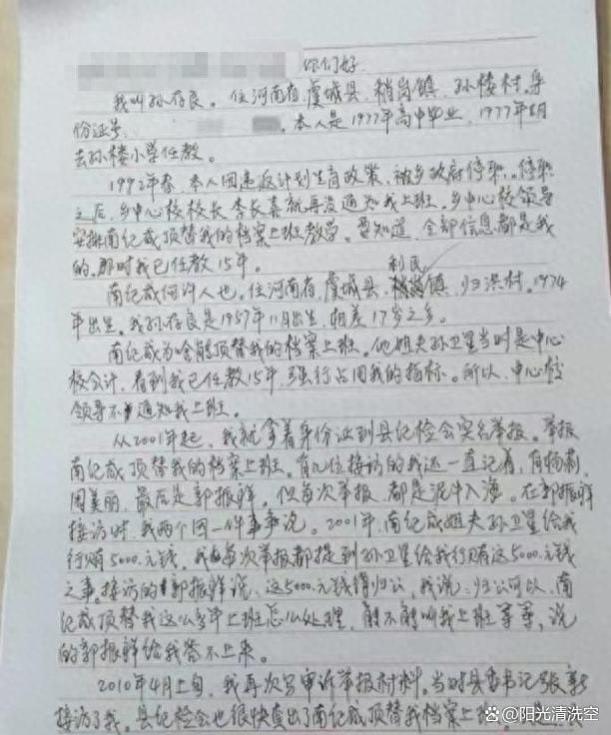 你们好
我叫孙存良。住河南省虞城县稍岗镇孙楼村，身
份证号。本人是1977年高中毕业，1977年8月
去孙楼小学任教。
1992年春，本人因违返计划生育政策，被乡政府停职。停职
之后，乡中心校校长李长春就再没通知我上班。乡中心校领导
安排南纪成顶替我的档案上班教学。要知道，全部信息都是我
的，那时我已任教15年。
利民
南纪成何许人也，住河南省虞城县镇归洪村。1974
年出生。我孙存良是1957年11月出生，相差17岁之多。
南纪成为啥能顶替我的档案上班。他姐夫孙卫星当时是中心
校会计，看到我已任教15年，强行占用我的指标。所以，中心校
领导不通知我上班。
从2001年起，我就拿着身份证到县纪检会实名举报。举报
南纪成顶替我的档案上班。有几位接访的我还一直记着，有杨莉，
周美丽，最后是郭振祥。但每次举报，都是泥牛入海。在郭振祥
接访时，我两个因一件事争说。2001年，南纪成姐夫孙卫星给我
行贿5000元钱，我每次举报都提到孙卫星给我行贿这5000元钱
之事。接访的郭振祥说，这5000元钱得归公，我说：归公可以，南
纪成顶替我这么多年上班怎么处理，能不能叫我上班等等，说
的郭振祥给我答不上来。
2010年4月上旬，我再次写申诉举报材料。当时县委书记张
接访了我。县纪检会也很快查出了南纪成顶替我档案上班
头条 @阳光清洗空